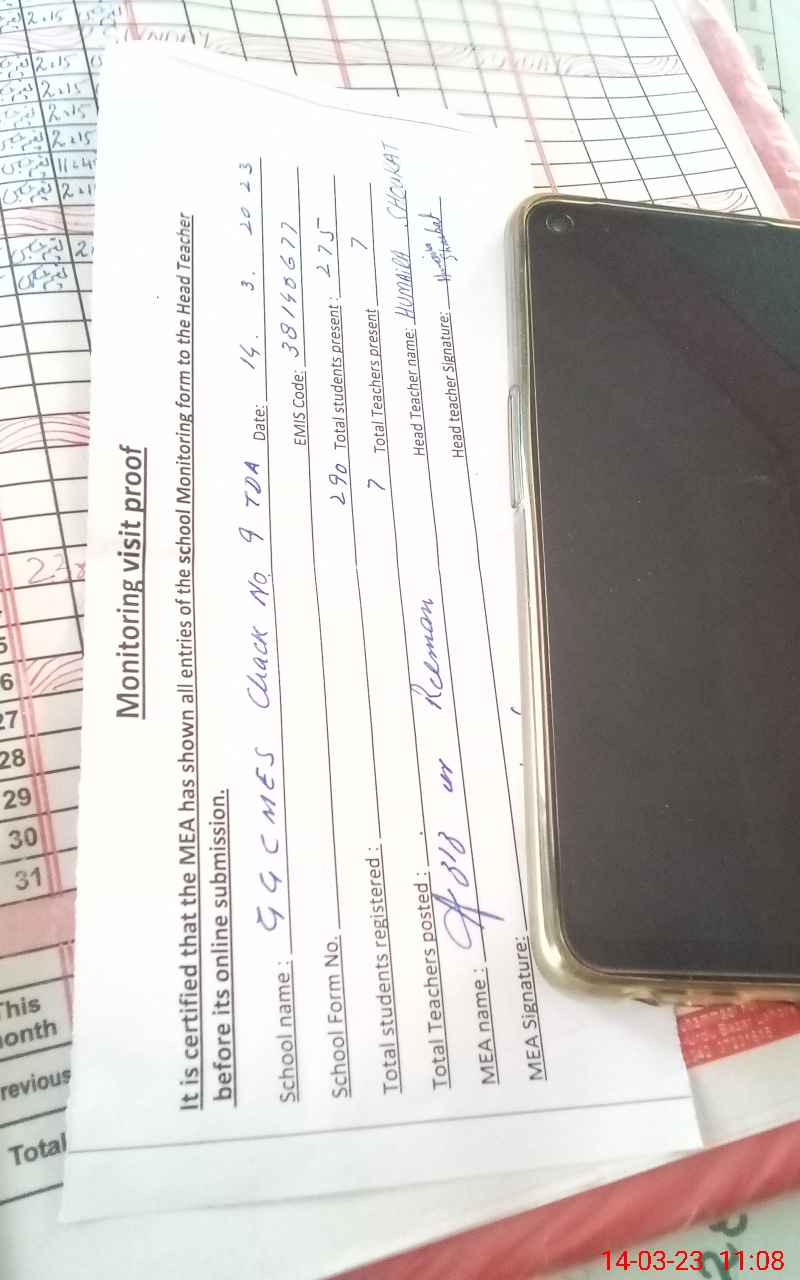 Monitoring visit proof
It is certified that the MEA has shown all entries of the school Monitoring form to the Head Teacher
before its online submission.
School name : GGCMES Chack No. 9 TDA Date: 14. 3. 2023
School Form No. EMIS Code: 38140677
Total students registered : 290 Total students present : 275
Total Teachers posted : 7 Total Teachers present 7
MEA name : ur Rehman Head Teacher name: HUMAIRA SHOUKAT
MEA Signature: Head teacher Signature: Humaira Shoukat
2.15
2.15
2.15
2.15
11.4
2.1
SUNDAY
6
27
28
29
30
31
This
onth
revious
Total
14-03-23 11:08